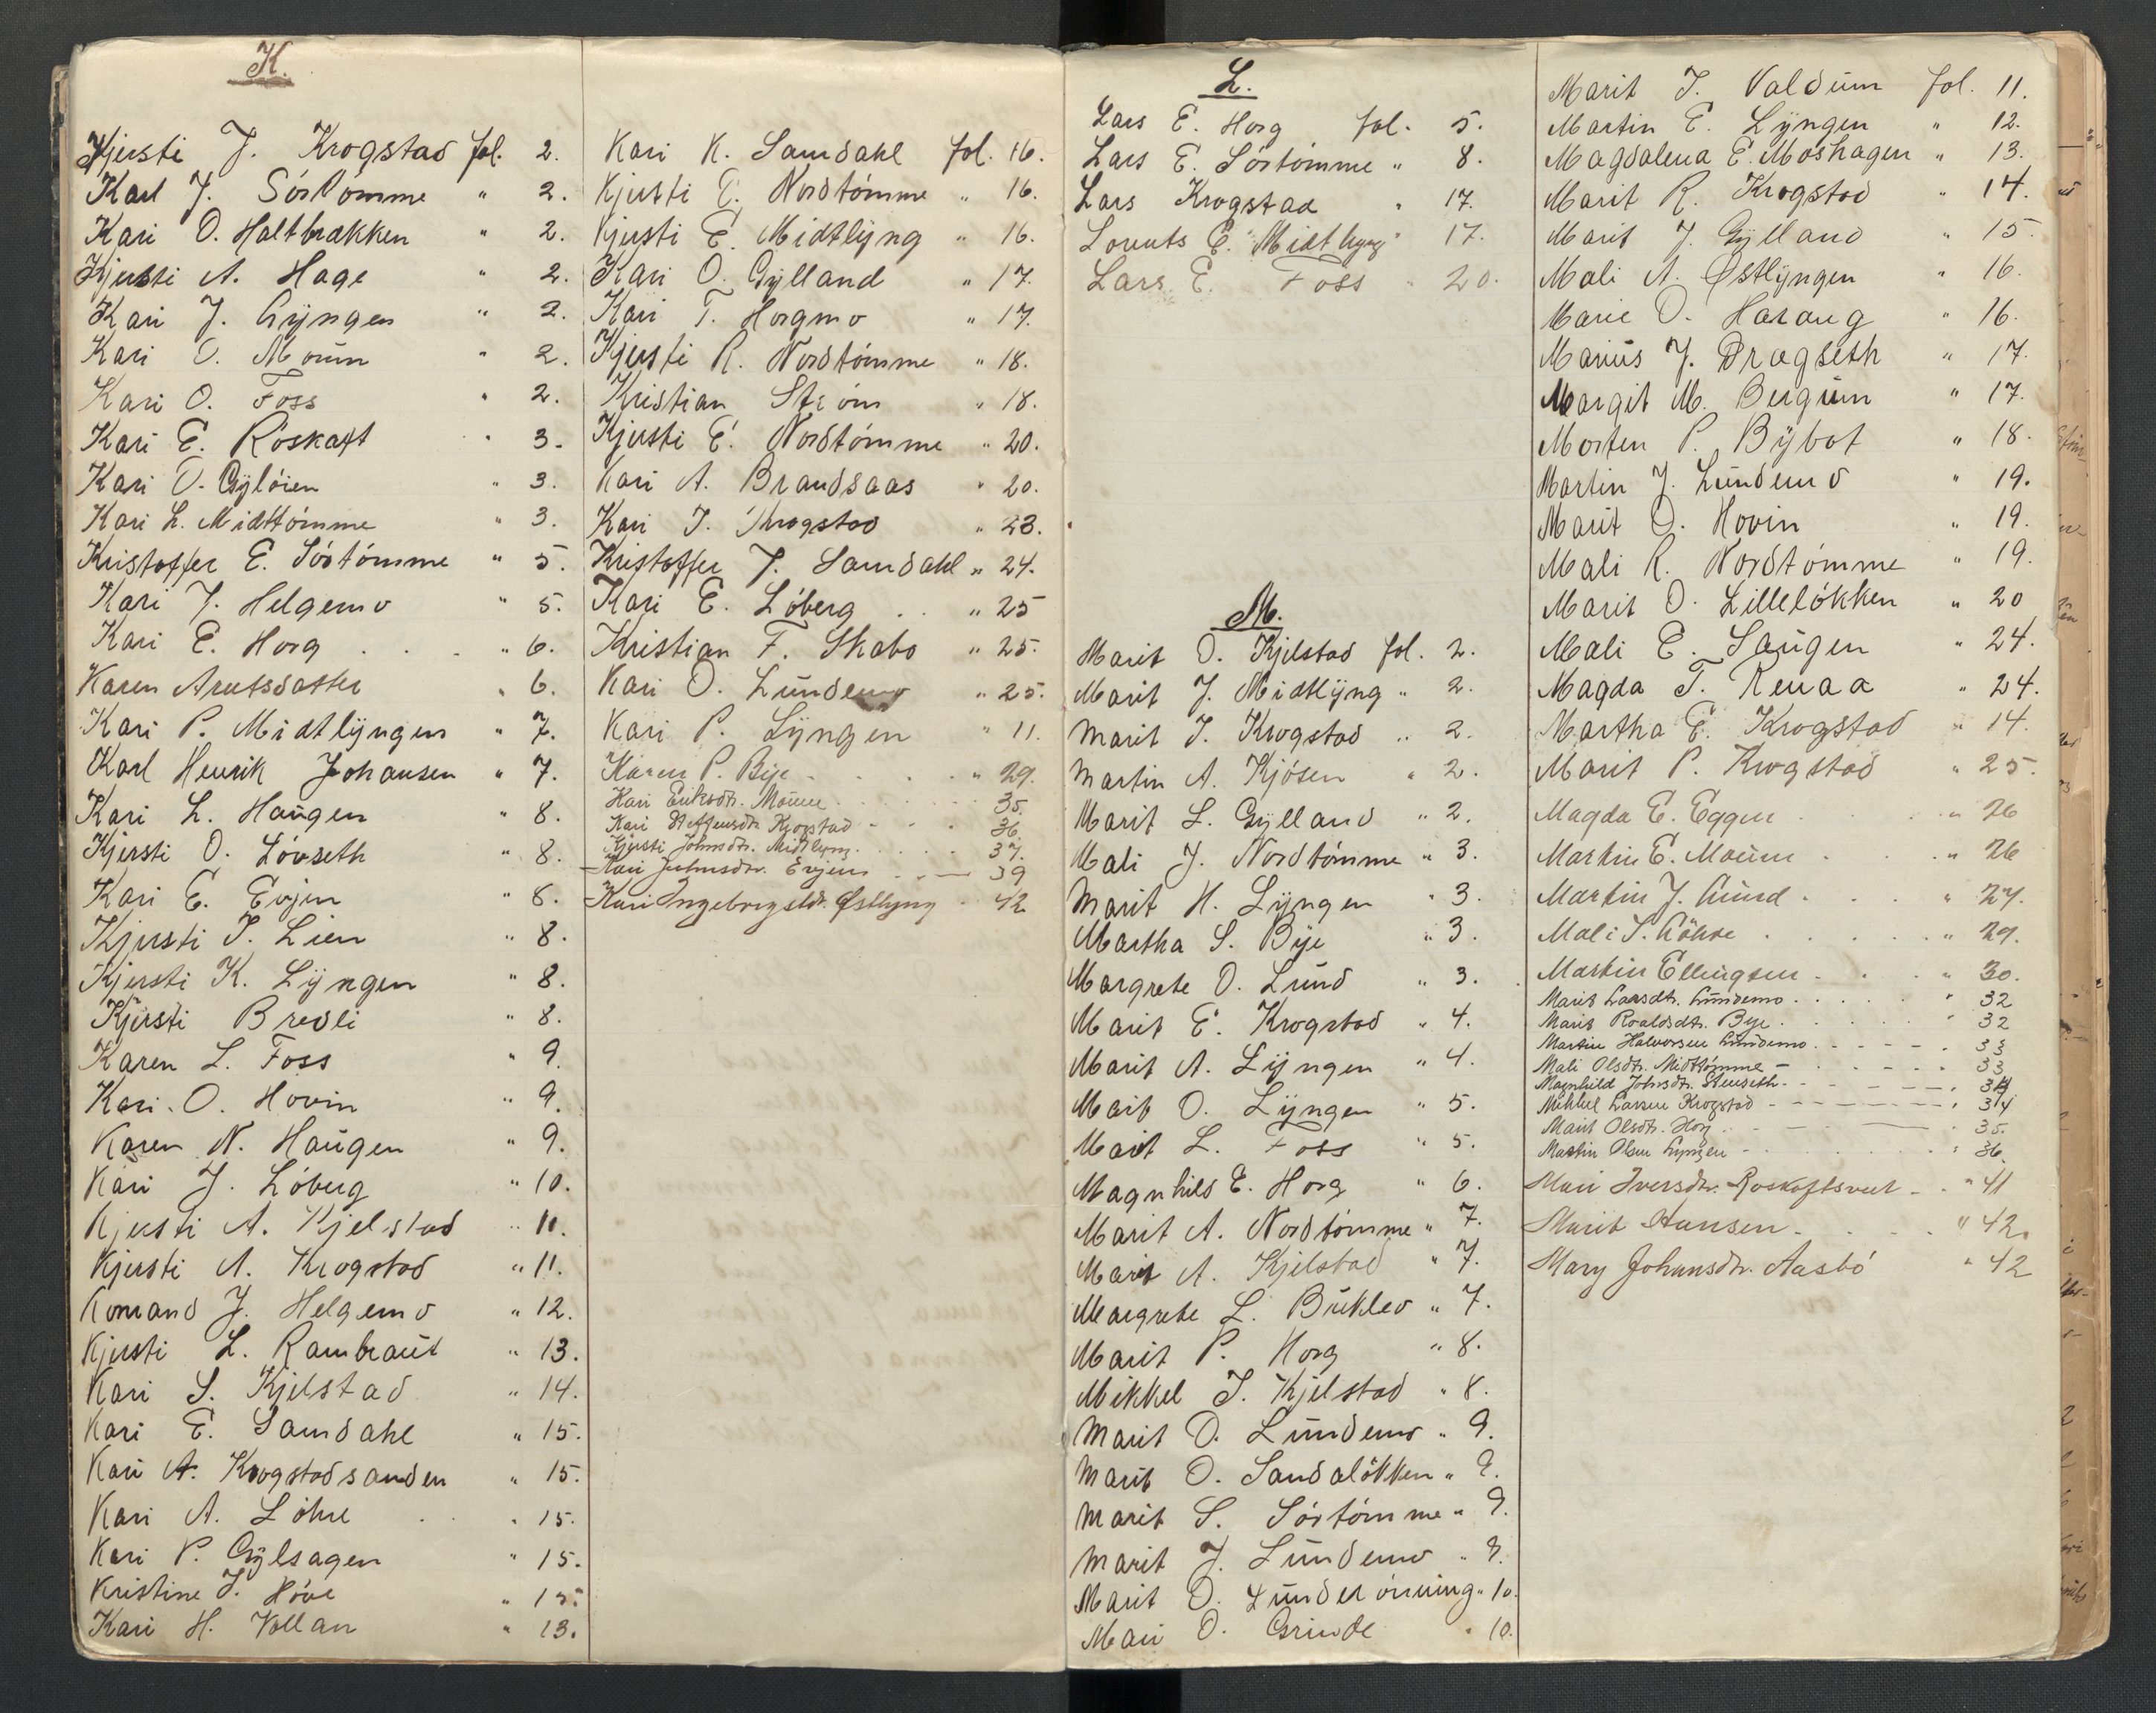 K.
Kjersti J. Krogstad fol. 2.
Karl J. Sörtömme " 2.
Kari O. Haltbrækken " 2.
Kjersti A. Hage " 2.
Kari J. Gyngen " 2.
Kari O. Moün " 2.
Kari O. Foss " 2.
Kari E. Röskaft " 3.
Kari O. Gylöien " 3.
Kari L. Midttömme " 3.
Kristoffer E. Sörtömme " 5.
Kari J. Helgemo " 5.
Kari E. Horg . . . " 6.
Karen Arntsdatter " 6.
Kari P. Midtlyngen " 7.
Karl Henrik Johansen " 7.
Kari L. Haugen " 8.
Kjersti O. Lövseth " 8.
Kari E. Evjen " 8.
Kjersti I. Lien " 8.
Kjersti K. Lyngen " 8.
Kjersti Bredli " 8.
Karen L. Foss " 9.
Kari O. Hovin " 9.
Karen N. Haugen " 9.
Kari J. Löberg " 10.
Kjersti A. Kjelstad " 11.
Kjersti A. Krogstad " 11.
Konrand J. Helgemo " 12.
Kjersti L. Rambraut " 13.
Kari S. Kjelstad " 14.
Kari E. Samdahl " 15.
Kari A. Krogstadsanden " 15.
Kari A. Löhre . . " 15.
Kari P. Gylsagen " 15.
Kristine J. Höve " 15.
Kari H. Vollan " 13.
Kari K. Samdahl fol. 16.
Kjersti E. Nordtömme " 16.
Kjersti E. Midtlyng " 16.
Kari O. Gylland " 17.
Kari T. Horgmo " 17.
Kjersti R. Nordtömme " 18.
Kristian Ström " 18.
Kjersti E. Nordtömme " 20.
Kari A. Brandsaas " 20.
Kari J. Krogstad " 23.
Kristoffer J. Samdahl " 24.
Kari E. Löberg . . " 25
Kristian F. Skabo " 25.
Kari O. Lundemo " 25.
Kari P. Lyngen " 11.
Karen P. Bye - . . . " 29.
Kari Eriksdtr. Moum . . . . . 35.
Kari Steffensdtr. Krogstad - - . 36.
Kjersti Johnsdtr. Midtlyng . . . . . 37.
Kari Johnsdtr. Evjen . . — 39
Kari Ingebrigtsdtr. Østlyng - 42
L.
Lars E. Horg fol. 5.
Lars E. Sörtömme " 8.
Lars Krogstad " 17.
Lorents E. Midtlyng " 17.
Lars E. Foss " 20.
M.
Marit O. Kjelstad fol. 2.
Marit J. Midtlyng " 2.
Marit I. Krogstad " 2.
Martin A. Kjösen " 2.
Marit L. Gylland " 2.
Mali J. Nordtömme " 3.
Marit H. Lyngen " 3.
Martha S. Bye " 3.
Margrete O. Lund " 3.
Marit E. Krogstad " 4.
Marit A. Lyngen " 4.
Marit O. Lyngen " 5.
Marit L. Foss " 5.
Magnhild E. Horg " 6.
Marit A. Nordtömme " 7.
Marit A. Kjelstad " 7.
Margrete L. Buklev " 7.
Marit P. Horg " 8.
Mikkel I. Kjelstad " 8.
Marit O. Lundemo " 9.
Marit O. Sandalökken " 9.
Marit S. Sörtömme " 9.
Marit J. Lundemo " 9.
Marit O. Lunderönning " 10.
Mari O. Grinde " 10.
Marit I. Valdum fol. 11.
Martin E. Lyngen " 12.
Magdalena E. Moshagen " 13.
Marit R. Krogstad " 14.
Marit J. Gylland " 15.
Mali A. Østlyngen " 16.
Marie O. Harang " 16.
Marius J. Dragseth " 17.
Margit M. Bergum " 17.
Morten P. Bybot " 18.
Martin J. Lundemo " 19.
Marit O. Hovin " 19.
Mali R. Nordtömme " 19.
Marit O. Lillelökken " 20
Mali E. Saugen " 24.
Magda T. Renaa " 24.
Martha E. Krogstad " 14.
Marit P. Krogstad " 25.
Magda E. Eggen . . . " 26
Martin E. Moum . . " 26
Martin J. Lund . . . " 27.
Mali S. Löhre . . . . . " 29.
Martin Ellingsen - . . " 30.
Marit Larsdtr. Lundemo . . . . . " 32
Marit Roaldsdtr. Bye . . . . . " 32
Martin Halvorsen Lundemo . - - - - . 33
Mali Olsdtr. Midttömme - . . - - . 33
Magnhild Johnsdtr. Stenseth - - - — - . 34
Mikkel Larsen Krogstad - - - - — . 34
Marit Olsdtr. Horg . . - — . 35.
Martin Olsen Lyngen - . . . . . " 36.
Mari Iversdtr. Röskaftsveet - " 41
Marit Hansen - . . . . " 42.
Mary Johansdtr. Aasbö " 42